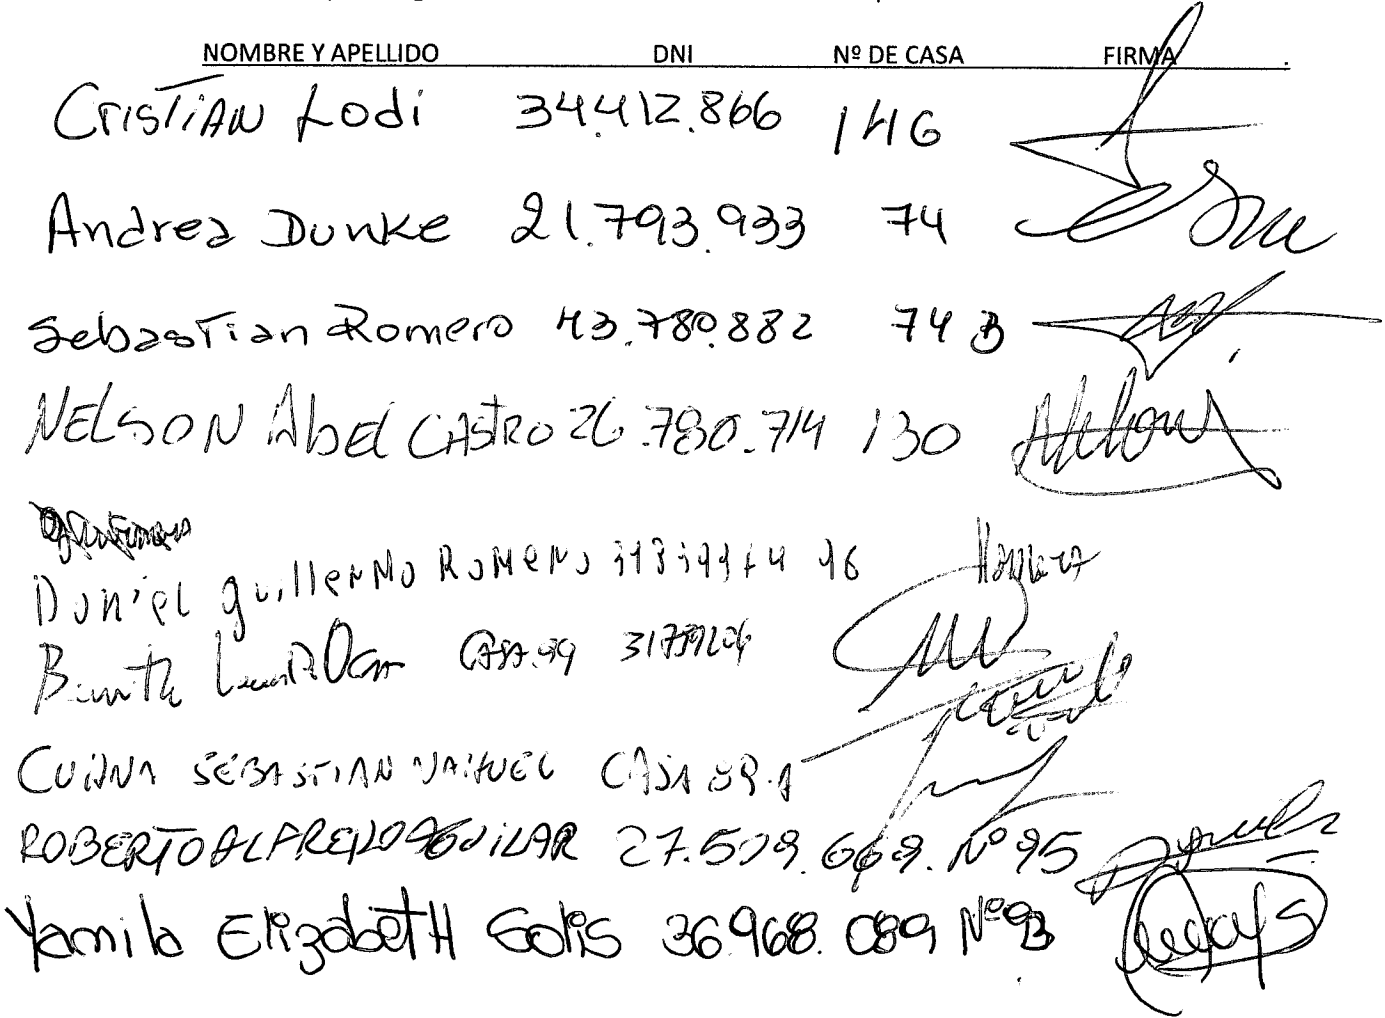 NOMBRE Y APELLIDO DNI Nº DE CASA FIRMA
CrisTiAN Lodi 34.412.866 146
Andrea Dunke 21.793.933 74
SebasTian Romero 43.780.882 74 B
NELSON Abel CASTRO 26.780.714 130
Daniel guillerMo RoMeRo 96
CASA 99
SEBASTIAN NAHUEL CASA
ROBERTO ALFREDO AGUILAR 27.509.669. Nº 95
Yamila ElizabetH Solis 36.968.089 Nº 93